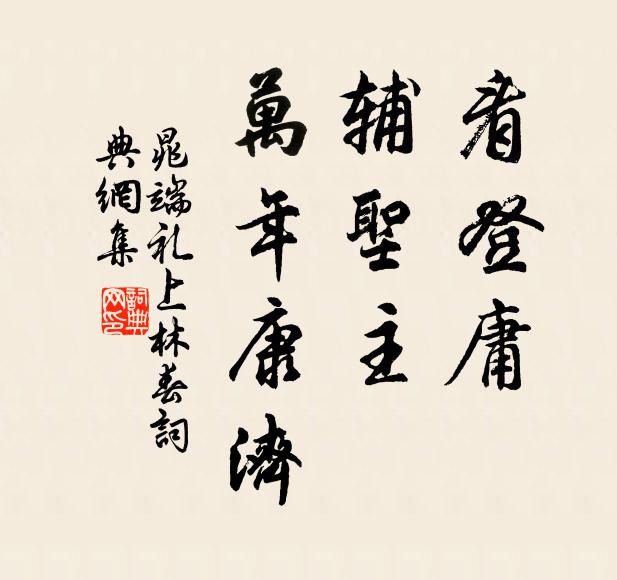 看登庸
辅聖主
萬年康濟
晁端礼上林春詞
典網集
詞典网印